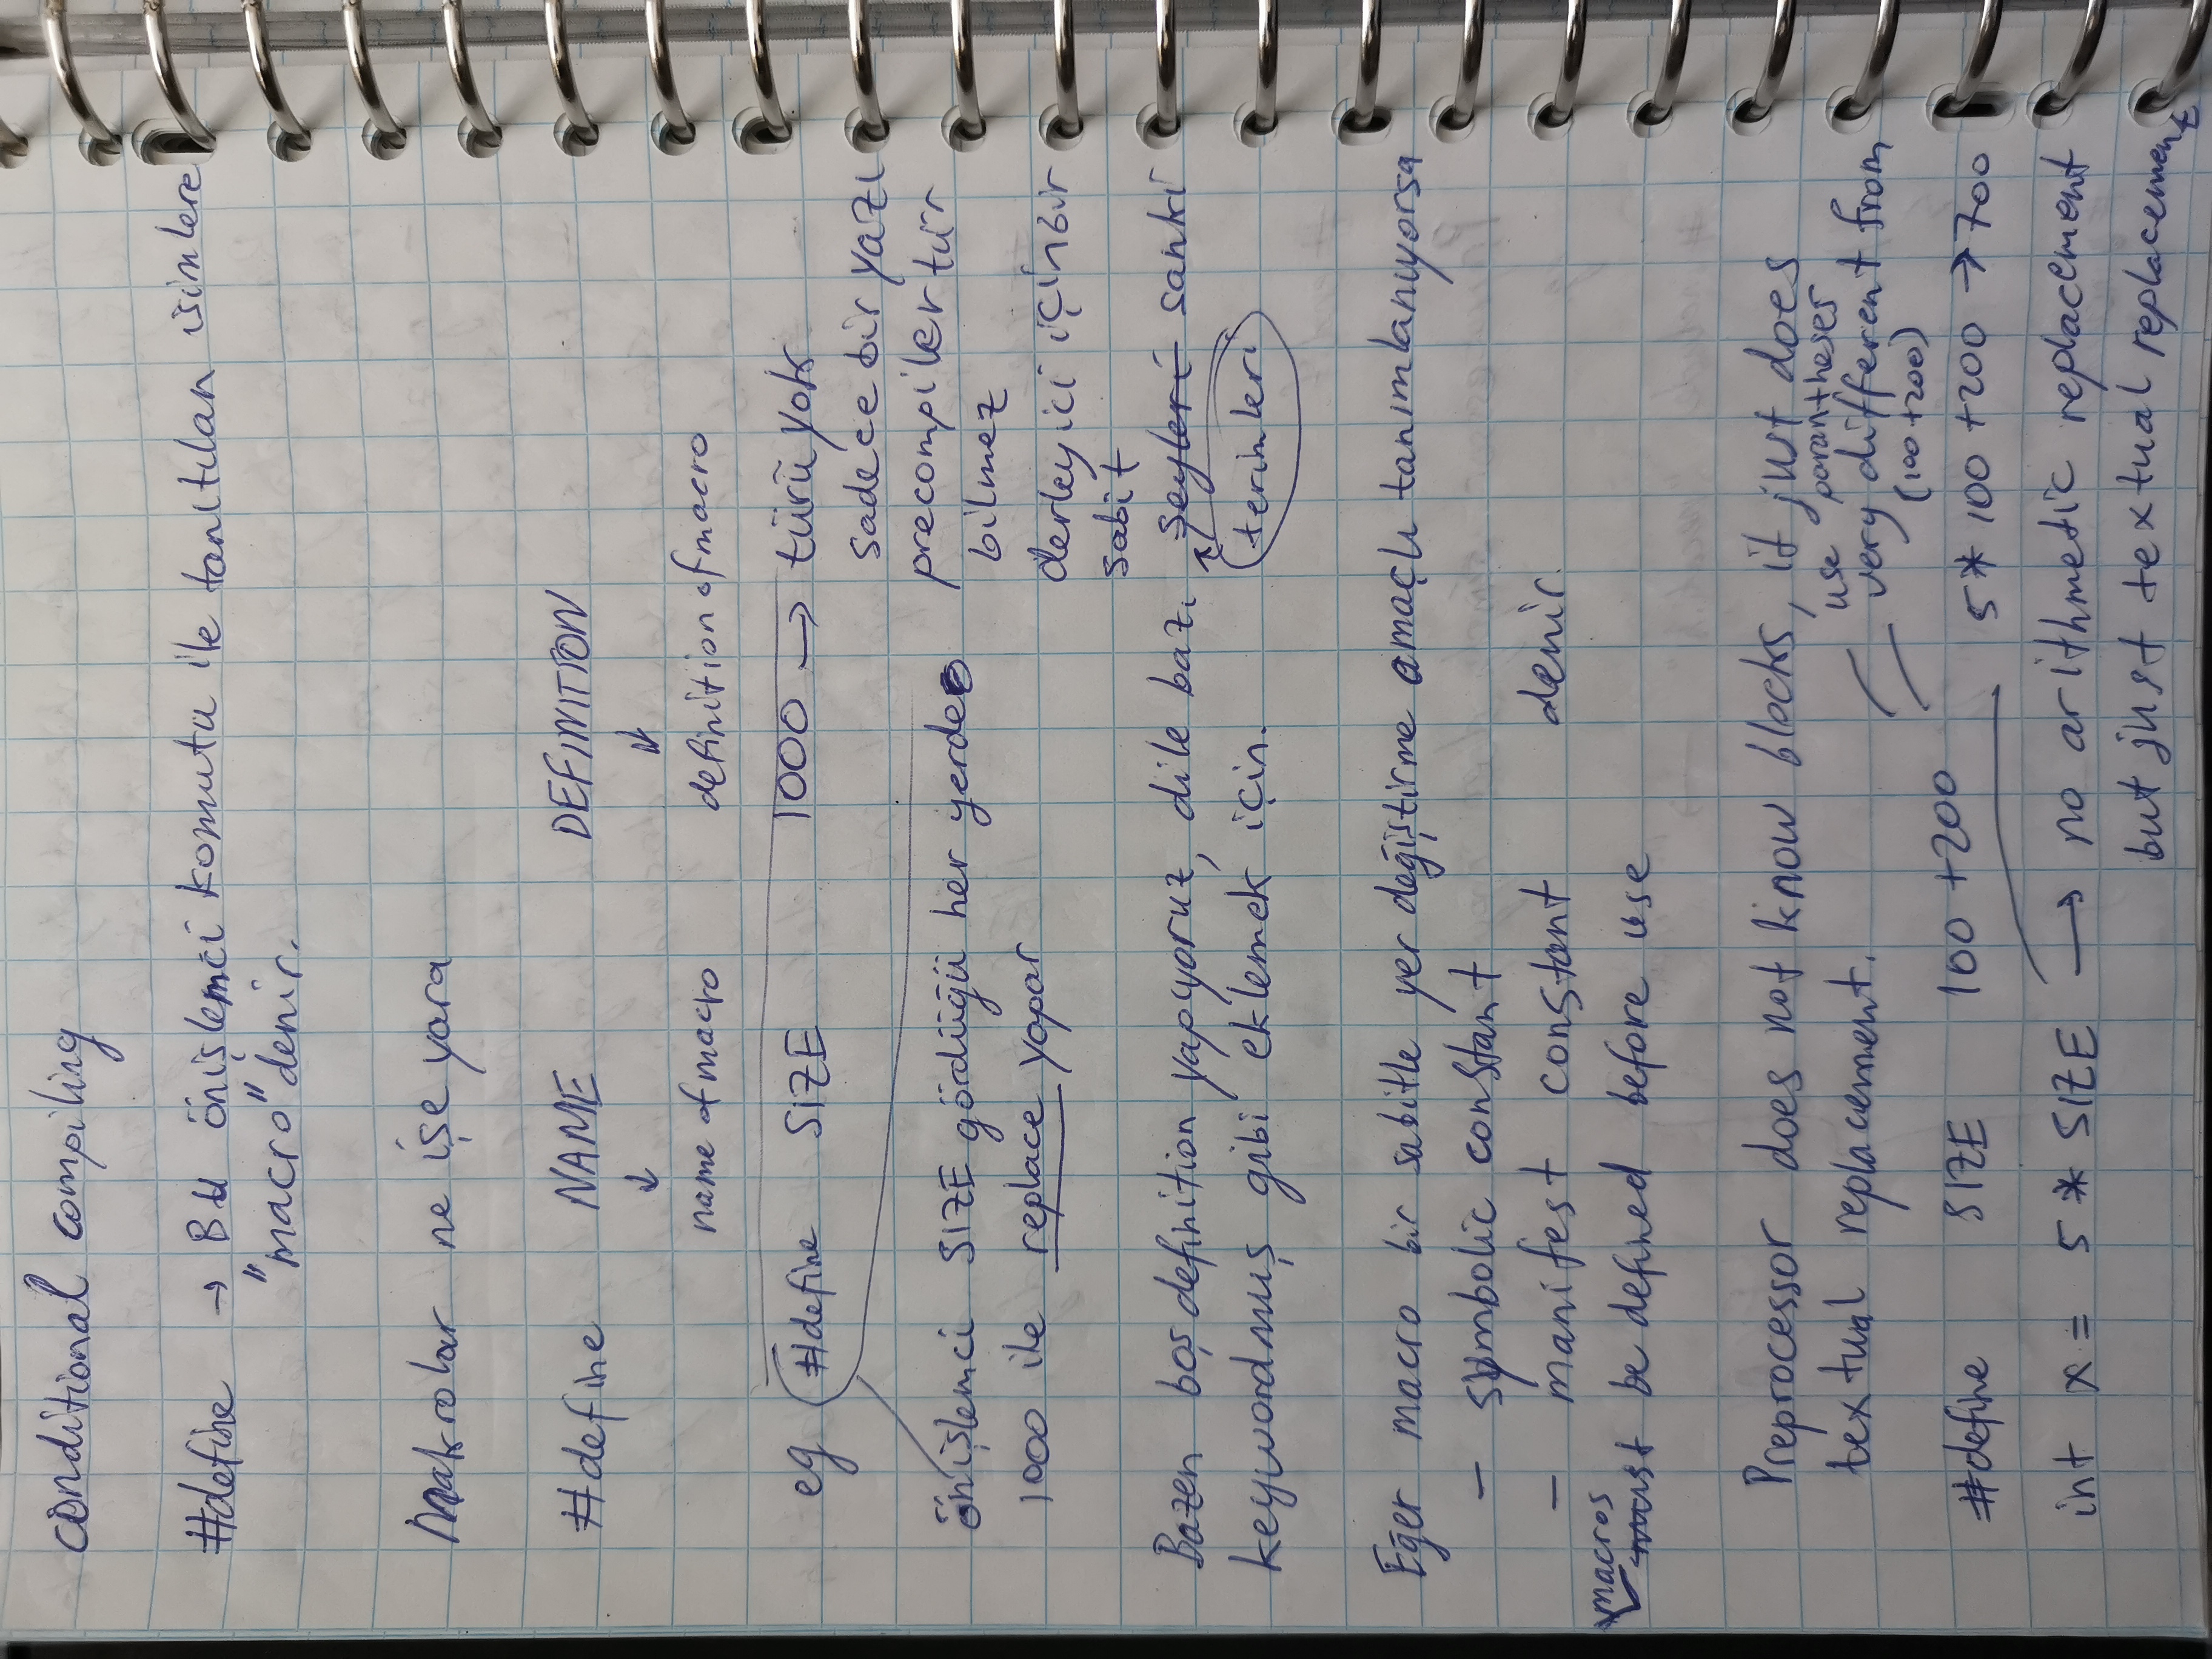 conditional compiling
#define → Bu önişlemci komutu ile tanıtılan isimlere
"macro" denir.
Makrolar ne işe yara
#define NAME DEFINITION
↓ ↓
name of macro definition of macro
eg #define SIZE 1000 → türü yok
sadece bir yazı
precompiler tür
bilmez
derleyici için bir
sabit
önişlemci SIZE gördüğü her yerde
1000 ile replace yapar
Bazen boş definition yapıyoruz, dile bazı şeyleri sanki
terimleri
keywordmuş gibi eklemek için.
Eğer macro bir sabitle yer değiştirme amaçlı tanımlanıyorsa
- symbolic constant
- manifest constant denir.
macros
must be defined before use
Preprocessor does not know blocks, it just does
textual replacement.
use parantheses
very different from
(100+200)
#define SIZE 100 +200
5* 100 +200 → 700
int x = 5 * SIZE → no arithmetic replacement
but just textual replacement